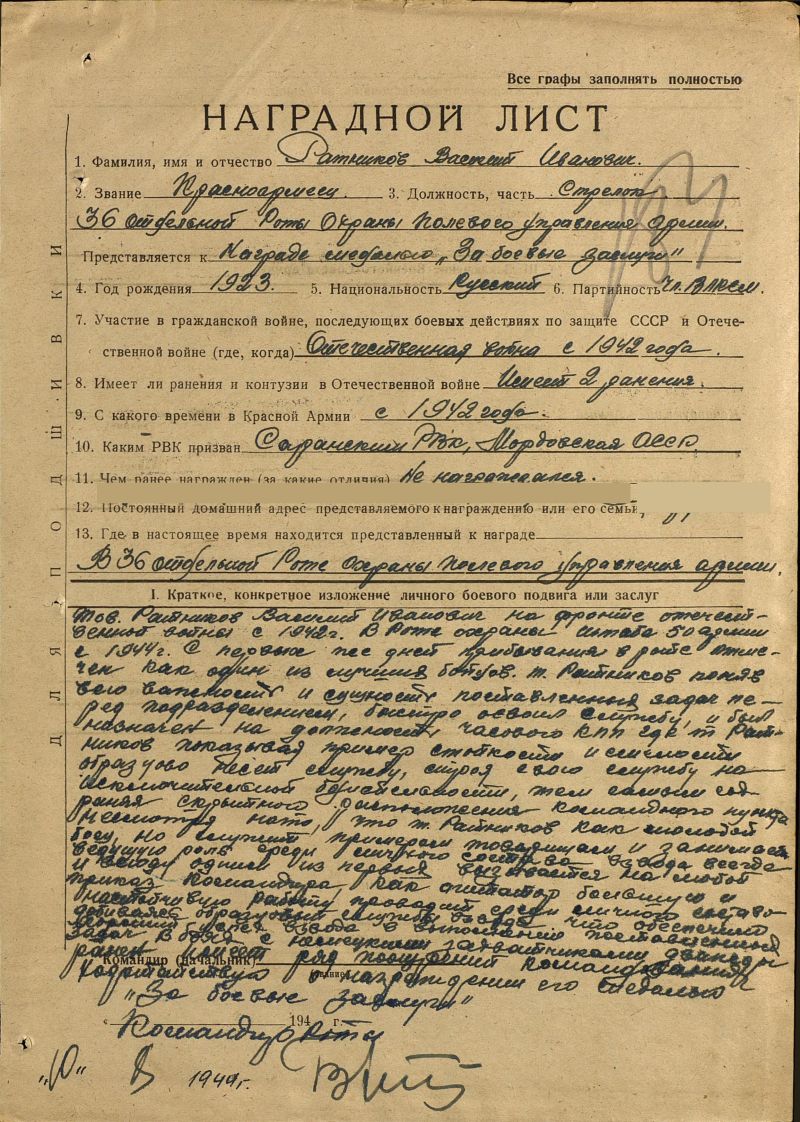 Все графы заполнять полностью
НАГРАДНОЙ ЛИСТ
1. Фамилия, имя и отчество Ратников Василий Иванович.
2. Звание Красноармеец. 3. Должность, часть Стрелок
36 отдельной Роты Охраны Полевого управления армии.
Представляется к Награде медалью „За боевые заслуги"
4. Год рождения 1923. 5. Национальность Русский 6. Партийность Чл. ВЛКСМ.
7. Участие в гражданской войне, последующих боевых действиях по защите СССР и Отече-
ственной войне (где, когда) Отечественная война с 1942 года.
8. Имеет ли ранения и контузии в Отечественной войне Имеет 2 ранения.
9. С какого времени в Красной Армии с 1942 года.
10. Каким РВК призван Саранским РВК, Мордовская АССР.
11. Чем ранее награжден (за какие отличия) Не награждался.
12. Постоянный домашний адрес представляемого к награждению или его семьи
13. Где в настоящее время находится представленный к награде
В 36 отдельной Роте охраны полевого управления армии.
ДЛЯ ПОДШИВКИ
I. Краткое, конкретное изложение личного боевого подвига или заслуг
Тов. Ратников Василий Иванович на фронте отечест-
венной войны с 1942г. В Роте охраны штаба 50 армии
с 1944г. С первых же дней прибывания в роте отме-
чен как один из лучших бойцов. т. Ратников поняв
всю важность и сущность поставленных задач пе-
ред подразделением, быстро освоил службу, и был
назначен на должность часового КПП где т. Рат-
ников показывая пример стойкости и смелости
образцово несет службу, строя свою службу на
исключительной бдительности, тем самым сох-
раняя скрытного расположения командного пункта
Несмотря на то, что т. Ратников как молодой
боец, но служит примером товарищам и занимает
ведущую роль среди личного состава взвода всегда
и всюду одним из первых вызывается на любой
приказ командира, как агитатор большую и
настойчивую работу проводит среди личного состава
добиваясь образцовой службы взвода, что обеспечило
успех взвода в выполнении поставленных
задач. В боях с немецкими захватчиками дважды
ранен имеет ряд поощрений командования
Командир (начальник)
(звание)
Ходатайствую о награждении его медалью
„За боевые заслуги"
194 г.
Командир Роты
„10" 1944г.